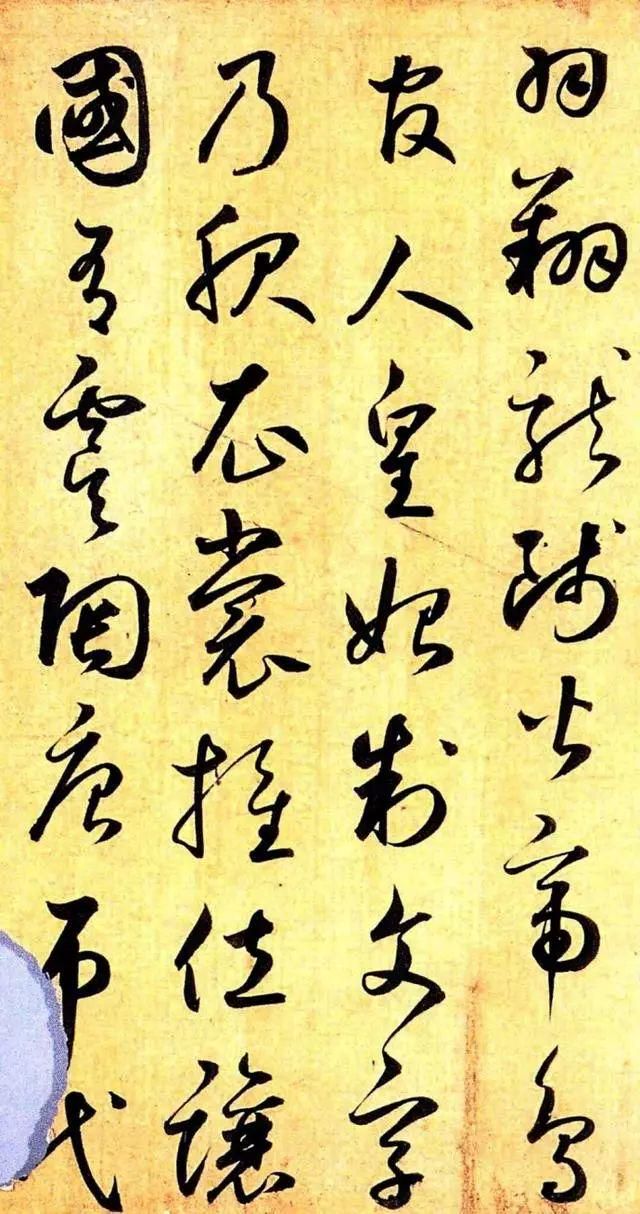 羽翔龍師火帝鳥
官人皇始制文字
乃服衣裳推位讓
國有虞陶唐弔民